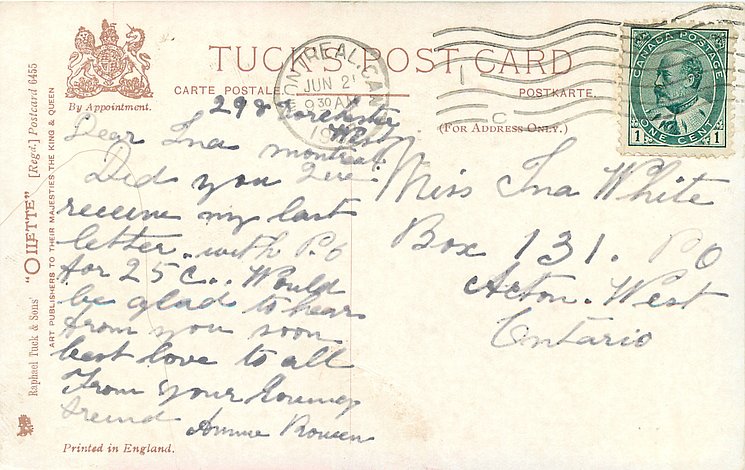 TUCK'S POST CARD
CARTE POSTALE.
POSTKARTE.
By Appointment.
(FOR ADDRESS ONLY.)
MONTREAL, CAN.
JUN 2
9 30 AM
CANADA POSTAGE
ONE CENT
1 1
C
298 Dorchester
West
Dear Ina montreal
Did you Que.
receive my last
letter. with P.O
for 25 C.. Would
be glad to hear
from you soon
best love to all
From your
freind Annie
Miss Ina White
Box 131. PO
Acton. West
Ontario
Raphael Tuck & Sons' "OILETTE" [Regd.] Postcard 6455
ART PUBLISHERS TO THEIR MAJESTIES THE KING & QUEEN
Printed in England.